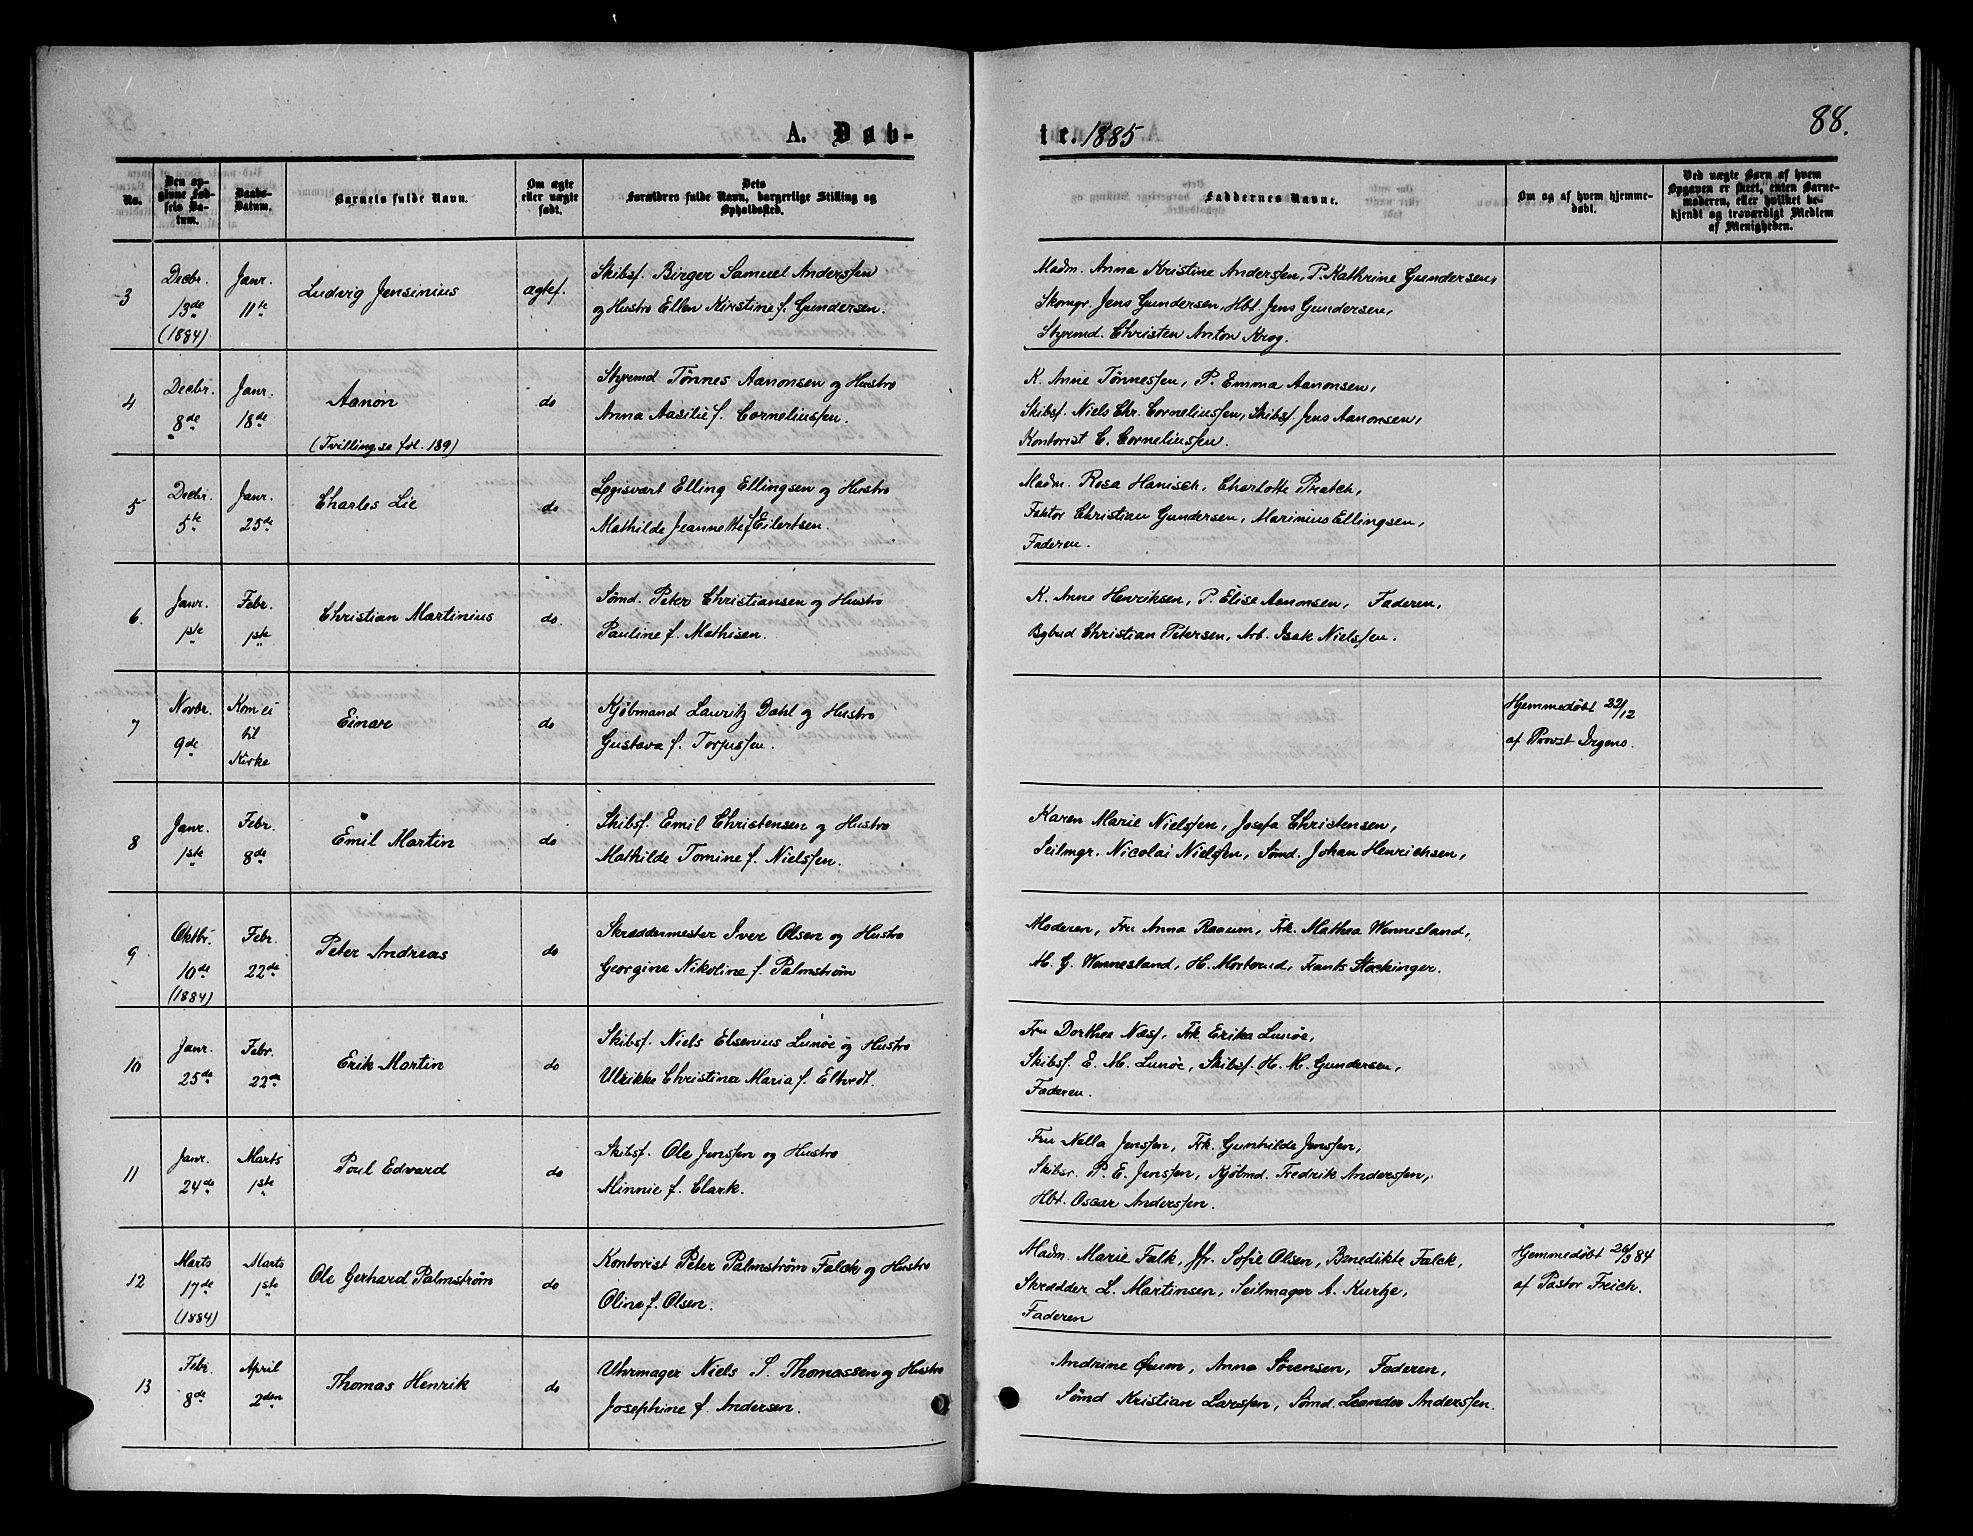 A. Døb-
te. 1885
88.
No.
Den opgivne Fødsels Datum.
Daabs-Datum.
Barnets fulde Navn.
Om ægte eller uægte født.
Dets Forældres fulde Navn, borgerlige Stilling og Opholdssted.
Faddernes Navne.
Om og af hvem hjemmedøbt.
Ved uægte Børn af hvem Opgaven er skeet, enten Barnemoderen, eller hvilket bekjendt og troværdigt Medlem af Menigheden.
3
Decbr. 13de (1884)
Janr. 11te
Ludvig Jensinius
ægtef.
Skibsf. Birger Samuel Anderssen
og Hustro Ellen Kirstine f. Gundersen.
Madm. Anna Kristine Anderssen, P. Kathrine Gundersen,
Skomgr. Jens Gundersen, Hbt. Jens Gundersen,
Styrmd. Christen Anton Krog.
4
Decbr. 8de
Janr. 18de
Aanon
(Tvilling, se fol. 189)
do
Styrmd Tønnes Aanonsen og Hustro
Anna Aasilie f. Corneliussen.
K. Anne Tønnessen, P. Emma Aanonsen,
Skibsf. Niels Chr. Corneliussen, Skibsf Jens Aanonsen,
Kontorist C. Corneliussen.
5
Decbr. 5te
Janr. 25de
Charles Lie
do
Logisvært Elling Ellingsen og Hustro
Mathilde Jeannette f Eilertsen.
Madm. Rosa Hanisch, Charlotte Pratch,
Faktor Christian Gundersen, Marinius Ellingsen,
Faderen.
6.
Janr. 1ste
Febr. 1ste
Christian Martinius
do.
Sømd. Peter Christiansen og Hustro
Pauline f. Mathisen.
K. Anne Henriksen, P. Elise Aanonsen, Faderen,
Bybud Christian Petersen, Arb. Isak Nielssen.
7
Novbr. 9de
Kom ei til Kirke
Einar
do
Kjøbmand Lauritz Dahl og Hustro
Gustava f. Torjussen.
Hjemmedøbt 22/12
af Provst Irgens.
8
Janr. 1ste
Febr. 8de
Emil Martin
do
Skibsf. Emil Christensen og Hustro
Mathilde Tomine f. Nielssen.
Karen Marie Nielssen, Josefa Christensen,
Seilmgr. Nicolai Nielssen, Sømd. Johan Henrichsen,
9
Oktbr. 10de (1884)
Febr. 22de
Peter Andreas
do
Skræddermester Iver Olsen og Hustro
Georgine Nikoline f. Palmstrøm
Moderen, Fru Anna Raaum, Frk. Mathea Wennesland,
M. G. Wennesland, H. Morterud, Frants Stockinger.
10
Janr. 25de
Febr. 22de
Erik Martin
do
Skibsf. Niels Elsenius Lunøe og Hustro
Ulrikke Christina Maria f. Eltvedt.
Fru Dorthea Næss, Frk Erika Lunøe,
Skibsf. E. M. Lunøe, Skibsf. H. M. Gundersen,
Faderen.
11
Janr. 24de
Marts 1ste
Poul Edvard
do
Skibsf. Ole Jenssen og Hustro
Minnie f. Clark.
Fru Nella Jenssen, Frk. Gunhilde Jenssen,
Skibsr. P. E. Jenssen, Kjøbmd. Fredrik Anderssen,
Hbt. Oscar Anderssen.
12
Marts 17de (1884)
Marts 1ste
Ole Gerhard Palmstrøm
do
Kontorist Peter Palmstrøm Falck og Hustro
Oline f. Olsen.
Madm. Marie Falk, Jfr. Sofie Olsen, Benedikte Falck,
Skrædder L. Martinsen, Seilmager A. Kurtze,
Faderen
Hjemmedøbt 26/3 84
af Pastor Freich.
13
Febr. 8de
April 2den
Thomas Henrik
do
Uhrmager Niels S. Thomassen og Hustro
Josephine f. Andersen.
Andrine Ørum, Anna Sørensen, Faderen,
Sømd Kristian Larssen, Sømd. Leonder Anderssen.